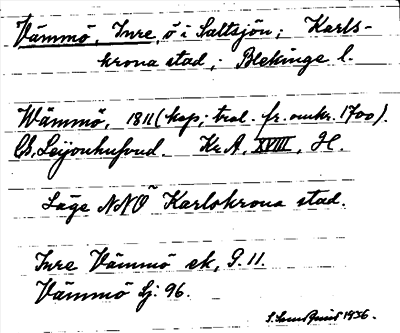 Vämmö, Inre, ö i Saltsjön; Karls-
krona stad, Blekinge l.
Wämmö, 1811 (kop; trol. fr. omkr. 1700).
Ch. Leijonhufvud. Kr.A. XVIII, H.
Läge NNO Karlskrona stad.
Inre Vämmö ek, S. 11.
Vämmö Lj: 96.
1936.